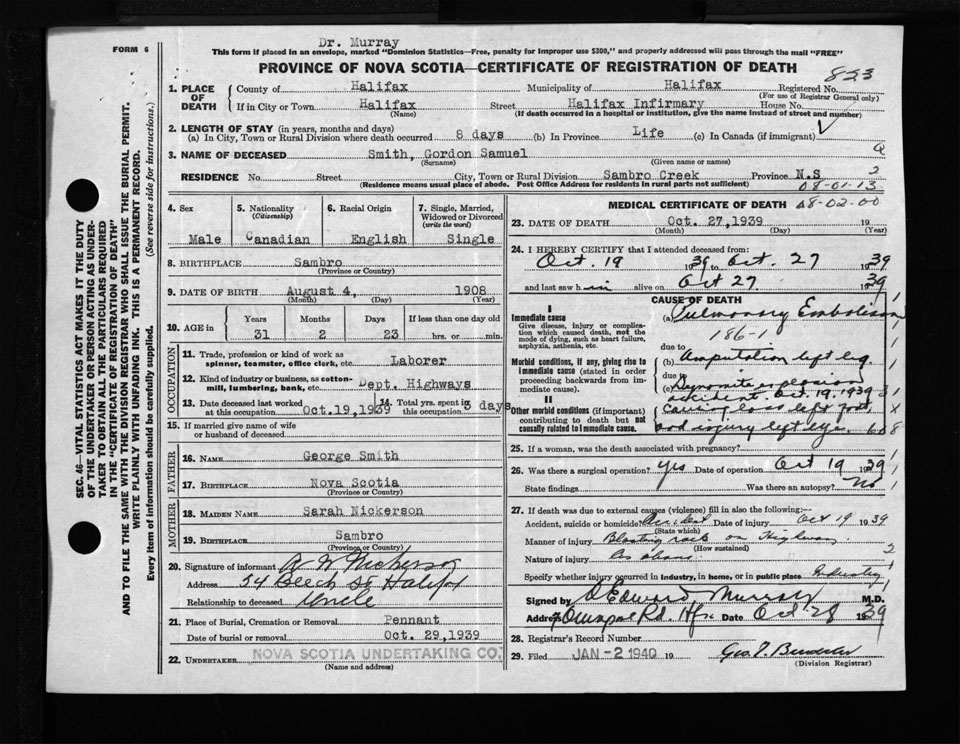 Dr. Murray
FORM 6
This form if placed in an envelope, marked "Dominion Statistics—Free, penalty for improper use $300," and properly addressed will pass through the mail "FREE"
PROVINCE OF NOVA SCOTIA—CERTIFICATE OF REGISTRATION OF DEATH
823
1. PLACE OF DEATH
County of Halifax Municipality of Halifax Registered No.
(For use of Registrar General only)
If in City or Town Halifax Street Halifax Infirmary House No.
(Name) (If death occurred in a hospital or institution, give the name instead of street and number)
2. LENGTH OF STAY (in years, months and days)
(a) In City, Town or Rural Division where death occurred 8 days (b) In Province Life (c) In Canada (if immigrant)
3. NAME OF DECEASED Smith, Gordon Samuel
(Surname) (Given name or names)
RESIDENCE No. Street City, Town or Rural Division Sambro Creek Province N.S
(Residence means usual place of abode. Post Office Address for residents in rural parts not sufficient)
2
08-01-13
4. Sex Male
5. Nationality (Citizenship) Canadian
6. Racial Origin English
7. Single, Married, Widowed or Divorced (write the word) Single
8. BIRTHPLACE Sambro
(Province or Country)
9. DATE OF BIRTH August 4, 1908
(Month) (Day) (Year)
10. AGE in Years Months Days If less than one day old
31 2 23 hrs. or min.
OCCUPATION
11. Trade, profession or kind of work as spinner, teamster, office clerk, etc. Laborer
12. Kind of industry or business, as cotton-mill, lumbering, bank, etc. Dept. Highways
13. Date deceased last worked at this occupation Oct.19,1939
14. Total yrs. spent in this occupation 3 days
15. If married give name of wife or husband of deceased
FATHER
16. Name George Smith
17. Birthplace Nova Scotia
(Province or Country)
MOTHER
18. Maiden Name Sarah Nickerson
19. Birthplace Sambro
(Province or Country)
20. Signature of informant A W Nickerson
Address 54 Beech St Halifax
Relationship to deceased Uncle
21. Place of Burial, Cremation or Removal Pennant
Date of burial or removal Oct. 29,1939
22. Undertaker NOVA SCOTIA UNDERTAKING CO.
(Name and address)
MEDICAL CERTIFICATE OF DEATH 08-02-00
23. DATE OF DEATH Oct. 27,1939 19
(Month) (Day) (Year)
24. I HEREBY CERTIFY that I attended deceased from:
Oct. 19 1939 to Oct. 27 1939
and last saw h im alive on Oct 27 1939
CAUSE OF DEATH
I
Immediate cause (a) Pulmonary Embolism
Give disease, injury or complication which caused death, not the mode of dying, such as heart failure, asphyxia, asthenia, etc.
186-1
due to
Morbid conditions, if any, giving rise to immediate cause (stated in order proceeding backwards from immediate cause). (b) Amputation left leg
due to
(c) Dynamite explosion
accident. Oct. 19, 1939
II
Other morbid conditions (if important) contributing to death but not causally related to immediate cause. Causing loss left foot
and injury left eye.
25. If a woman, was the death associated with pregnancy?
26. Was there a surgical operation? yes Date of operation Oct 19 1939
State findings Was there an autopsy? No
27. If death was due to external causes (violence) fill in also the following:—
Accident, suicide or homicide? Accident Date of injury Oct 19 1939
(State which)
Manner of injury Blasting rock on Highway
(How sustained)
Nature of injury As above
2
Specify whether injury occurred in industry, in home, or in public place Industry
Signed by D Edward Murray M.D.
Address Rd. Hfx Date Oct 28 1939
28. Registrar's Record Number
29. Filed JAN -2 1940 19
(Division Registrar)
SEC. 46—VITAL STATISTICS ACT MAKES IT THE DUTY
OF THE UNDERTAKER OR PERSON ACTING AS UNDERTAKER TO OBTAIN ALL THE PARTICULARS REQUIRED
IN THE "CERTIFICATE OF REGISTRATION OF DEATH" AND TO FILE THE SAME WITH THE DIVISION REGISTRAR WHO SHALL ISSUE THE BURIAL PERMIT.
WRITE PLAINLY WITH UNFADING INK. THIS IS A PERMANENT RECORD.
Every item of information should be carefully supplied. (See reverse side for instructions.)